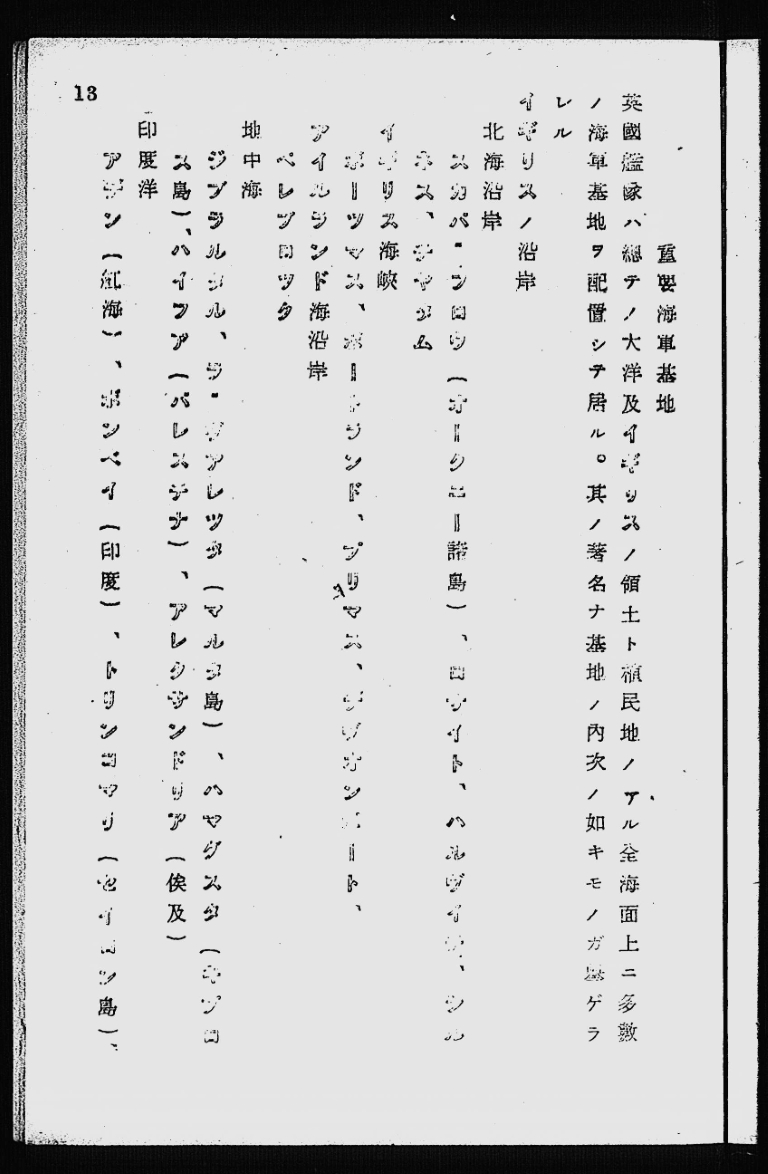 13
重要海軍基地
英國艦隊ハ總テノ大洋及イギリスノ領土ト植民地ノアル全海面上ニ多數
ノ海軍基地ヲ配置シテ居ル。其ノ著名ナ基地ノ內次ノ如キモノガ擧ゲラ
レル
イギリスノ沿岸
北海沿岸
スカパ・フロウ(オークニー諸島)、ロサイト、ハルヴイチ、シル
ネス、チヤタム
イギリス海峽
ポーツマス、ポートランド、プリマス、デヴオンポート、
アイルランド海沿岸
ペレブロツク
地中海
ジブラルタル、ラ・ヴアレツタ(マルタ島)、ハマグスタ(キプロ
ス島)、ハイフア(パレスチナ)、アレクサンドリア(埃及)
印度洋
アデン(紅海)、ボンベイ(印度)、トリンコマリ(セイロン島)、